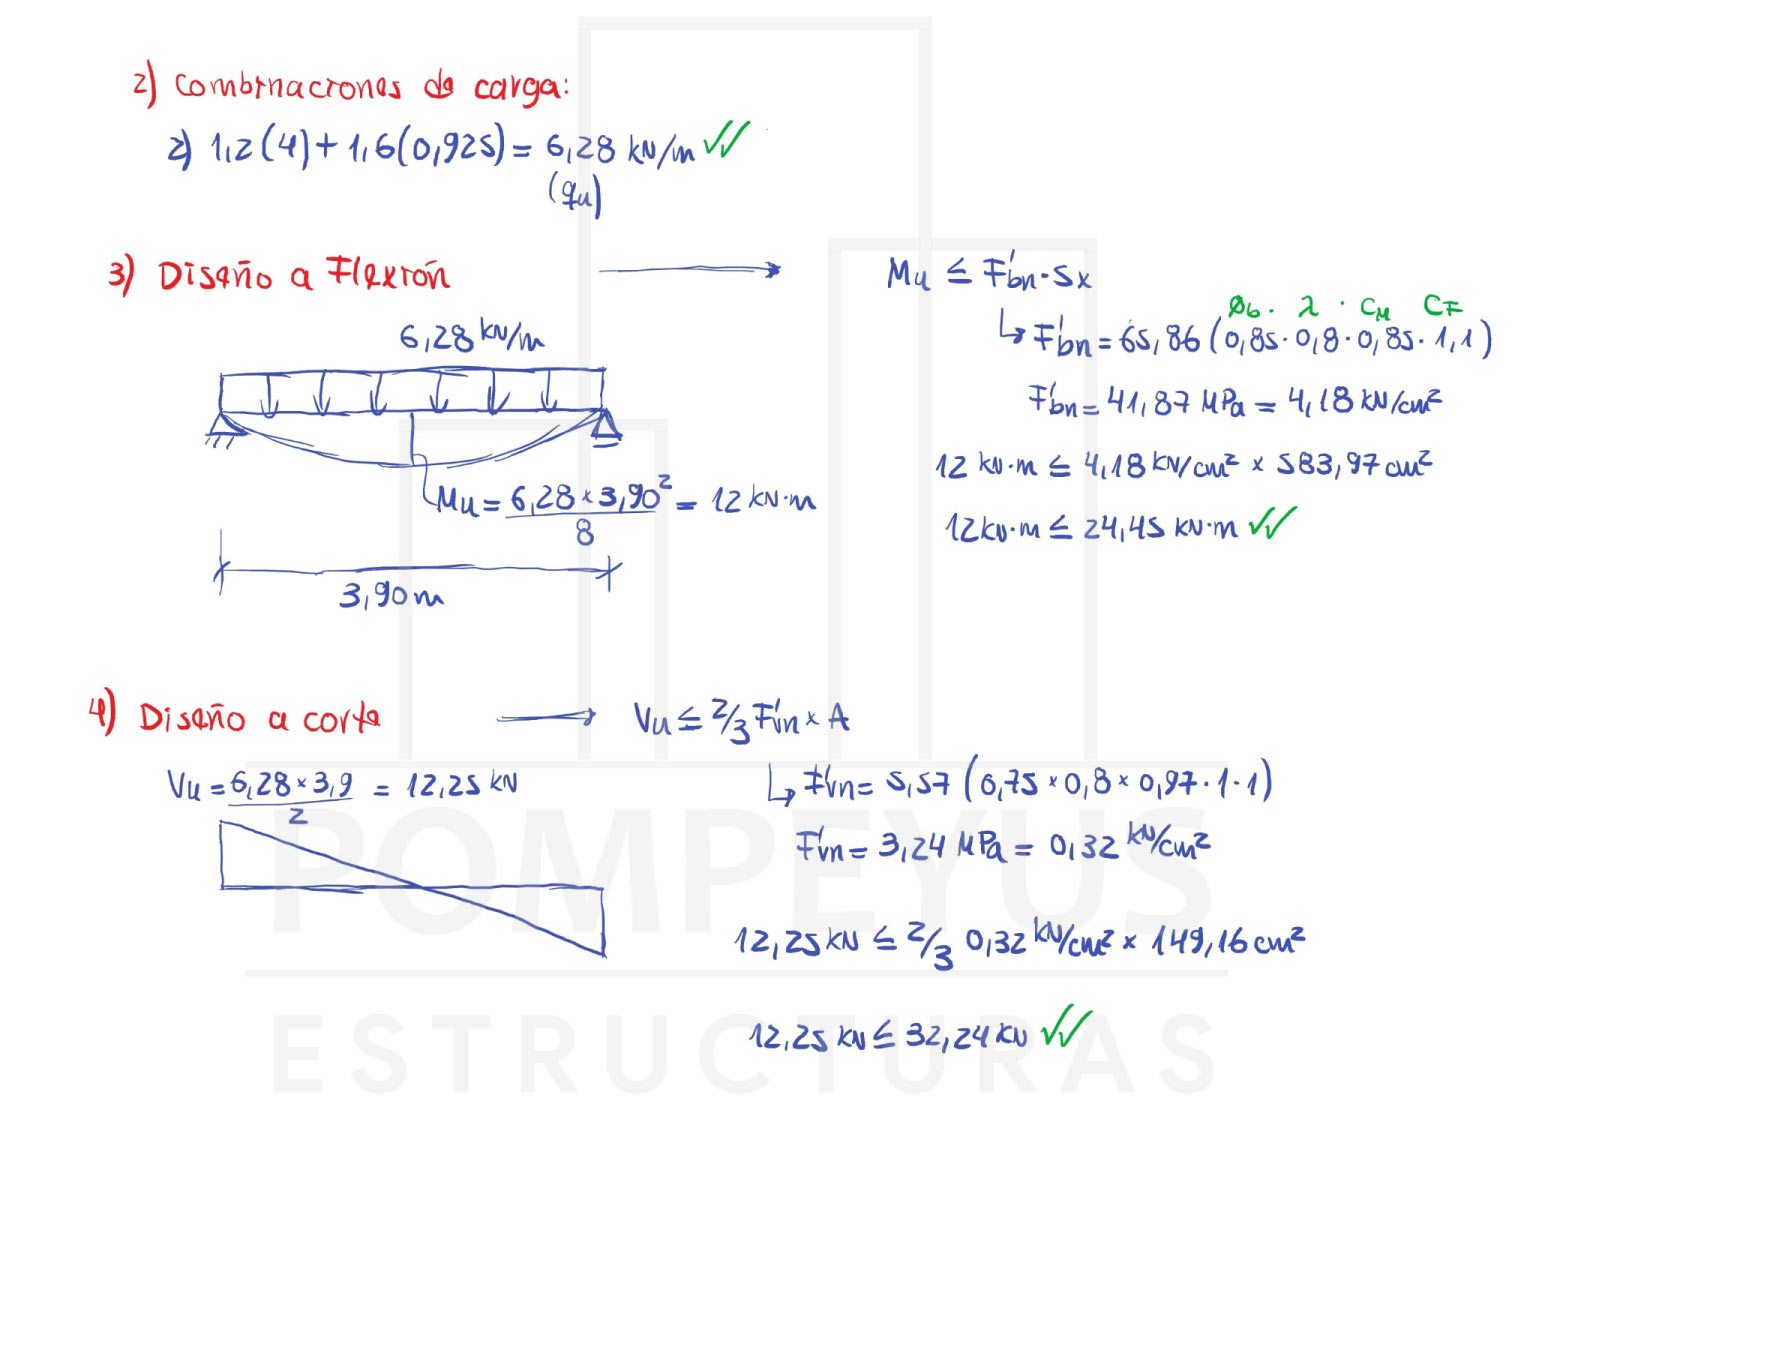 2) Combinaciones de carga:
2) 1,2(4)+1,6(0,925)= 6,28 kN/m
(qu)
3) Diseño a Flexión
6,28 kN/m
Mu = 6,28 × 3,90² / 8 = 12 kN·m
3,90 m
Mu ≤ F'bn · Sx
Øb · λ · CM CF
F'bn = 65,86 (0,85 · 0,8 · 0,85 · 1,1)
F'bn = 41,87 MPa = 4,18 kN/cm²
12 kN·m ≤ 4,18 kN/cm² × 583,97 cm²
12 kN·m ≤ 24,45 kN·m
4) Diseño a corte
Vu ≤ 2/3 F'vn × A
Vu = 6,28 × 3,9 / 2 = 12,25 kN
F'vn = 5,57 (0,75 × 0,8 × 0,97 · 1 · 1)
F'vn = 3,24 MPa = 0,32 kN/cm²
12,25 kN ≤ 2/3 0,32 kN/cm² × 149,16 cm²
12,25 kN ≤ 32,24 kN
POMPEYUS
ESTRUCTURAS